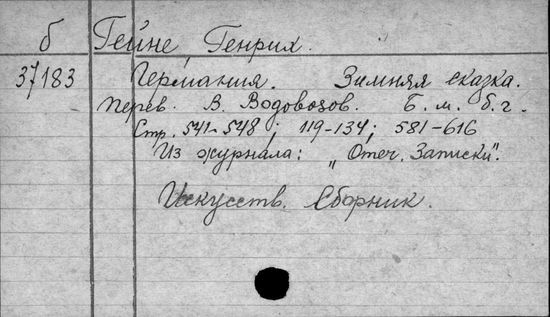 б Гейне, Генрих.
37183 Германия. Зимняя сказка.
Перев. В. Водовозов. Б. м. б. г.
Стр. 541-548; 119-134; 581-616
Из журнала: "Отеч. Записки".
Искусств. Сборник.